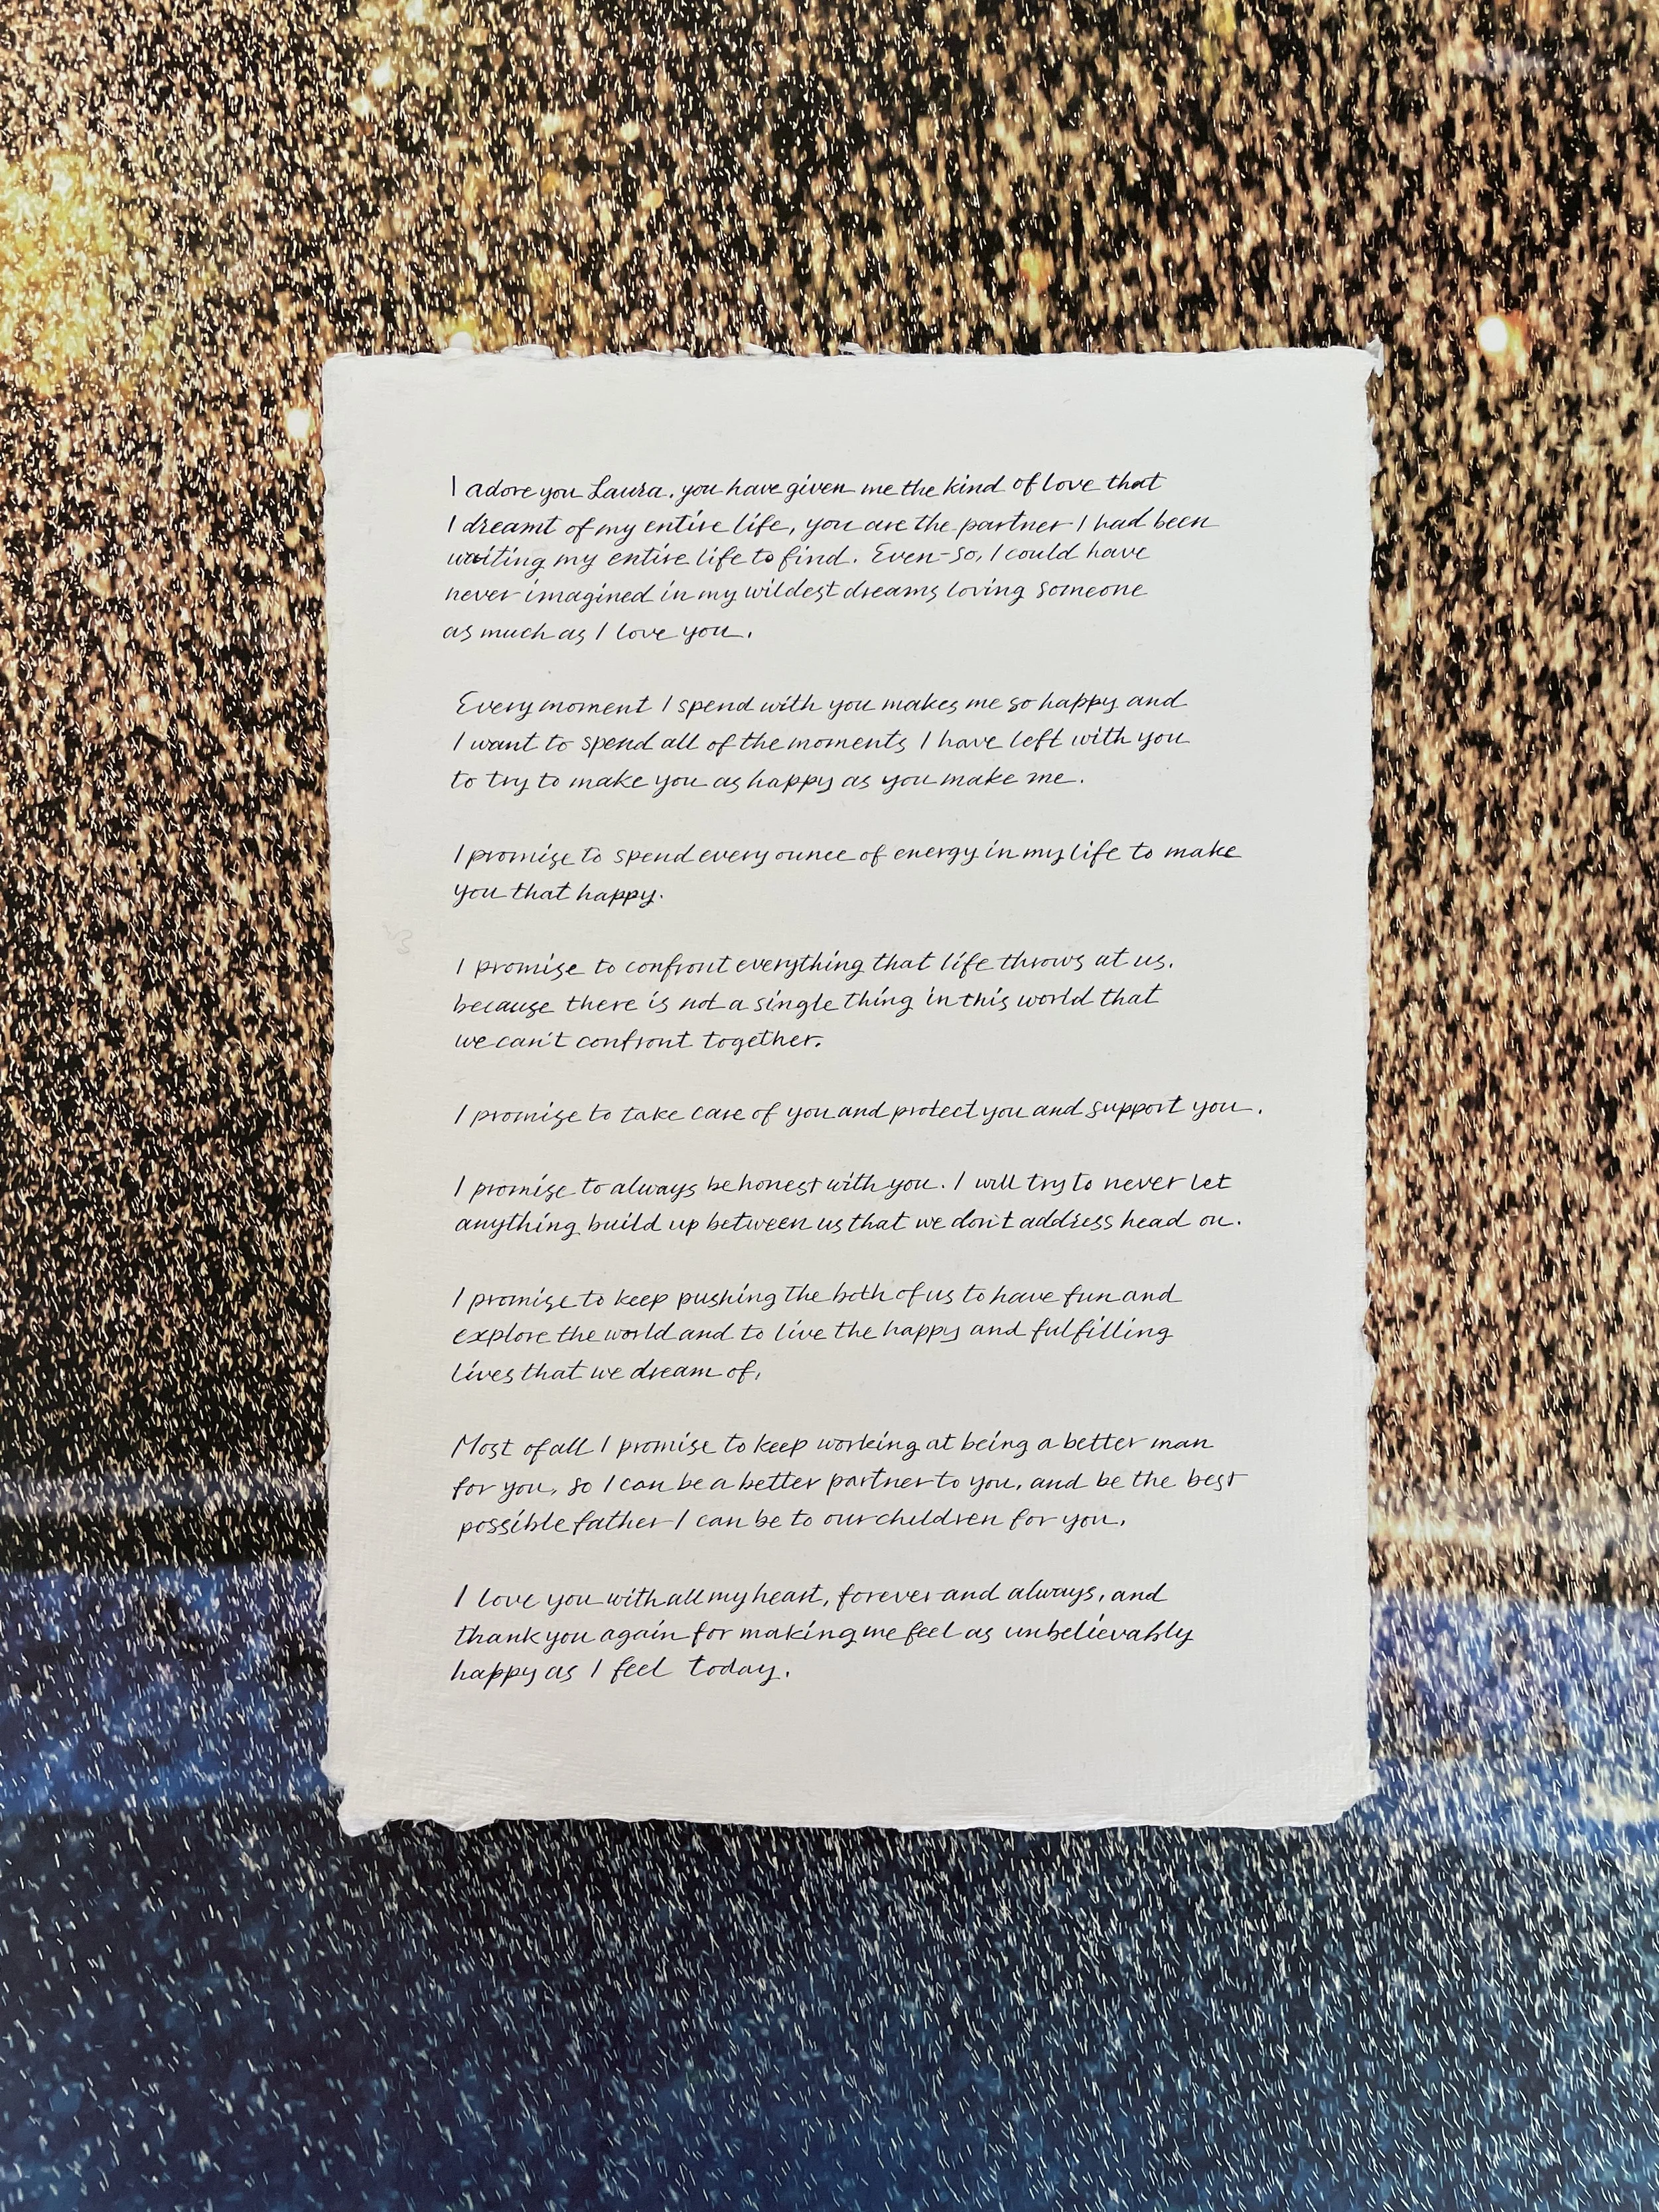 I adore you Laura, you have given me the kind of love that
I dreamt of my entire life, you are the partner I had been
waiting my entire life to find. Even-so, I could have
never imagined in my wildest dreams loving someone
as much as I love you.
Every moment I spend with you makes me so happy and
I want to spend all of the moments I have left with you
to try to make you as happy as you make me.
I promise to spend every ounce of energy in my life to make
you that happy.
I promise to confront everything that life throws at us,
because there is not a single thing in this world that
we can't confront together.
I promise to take care of you and protect you and support you.
I promise to always be honest with you. I will try to never let
anything build up between us that we don't address head on.
I promise to keep pushing the both of us to have fun and
explore the world and to live the happy and fulfilling
lives that we dream of.
Most of all I promise to keep working at being a better man
for you, so I can be a better partner to you, and be the best
possible father I can be to our children for you.
I love you with all my heart, forever and always, and
thank you again for making me feel as unbelievably
happy as I feel today.